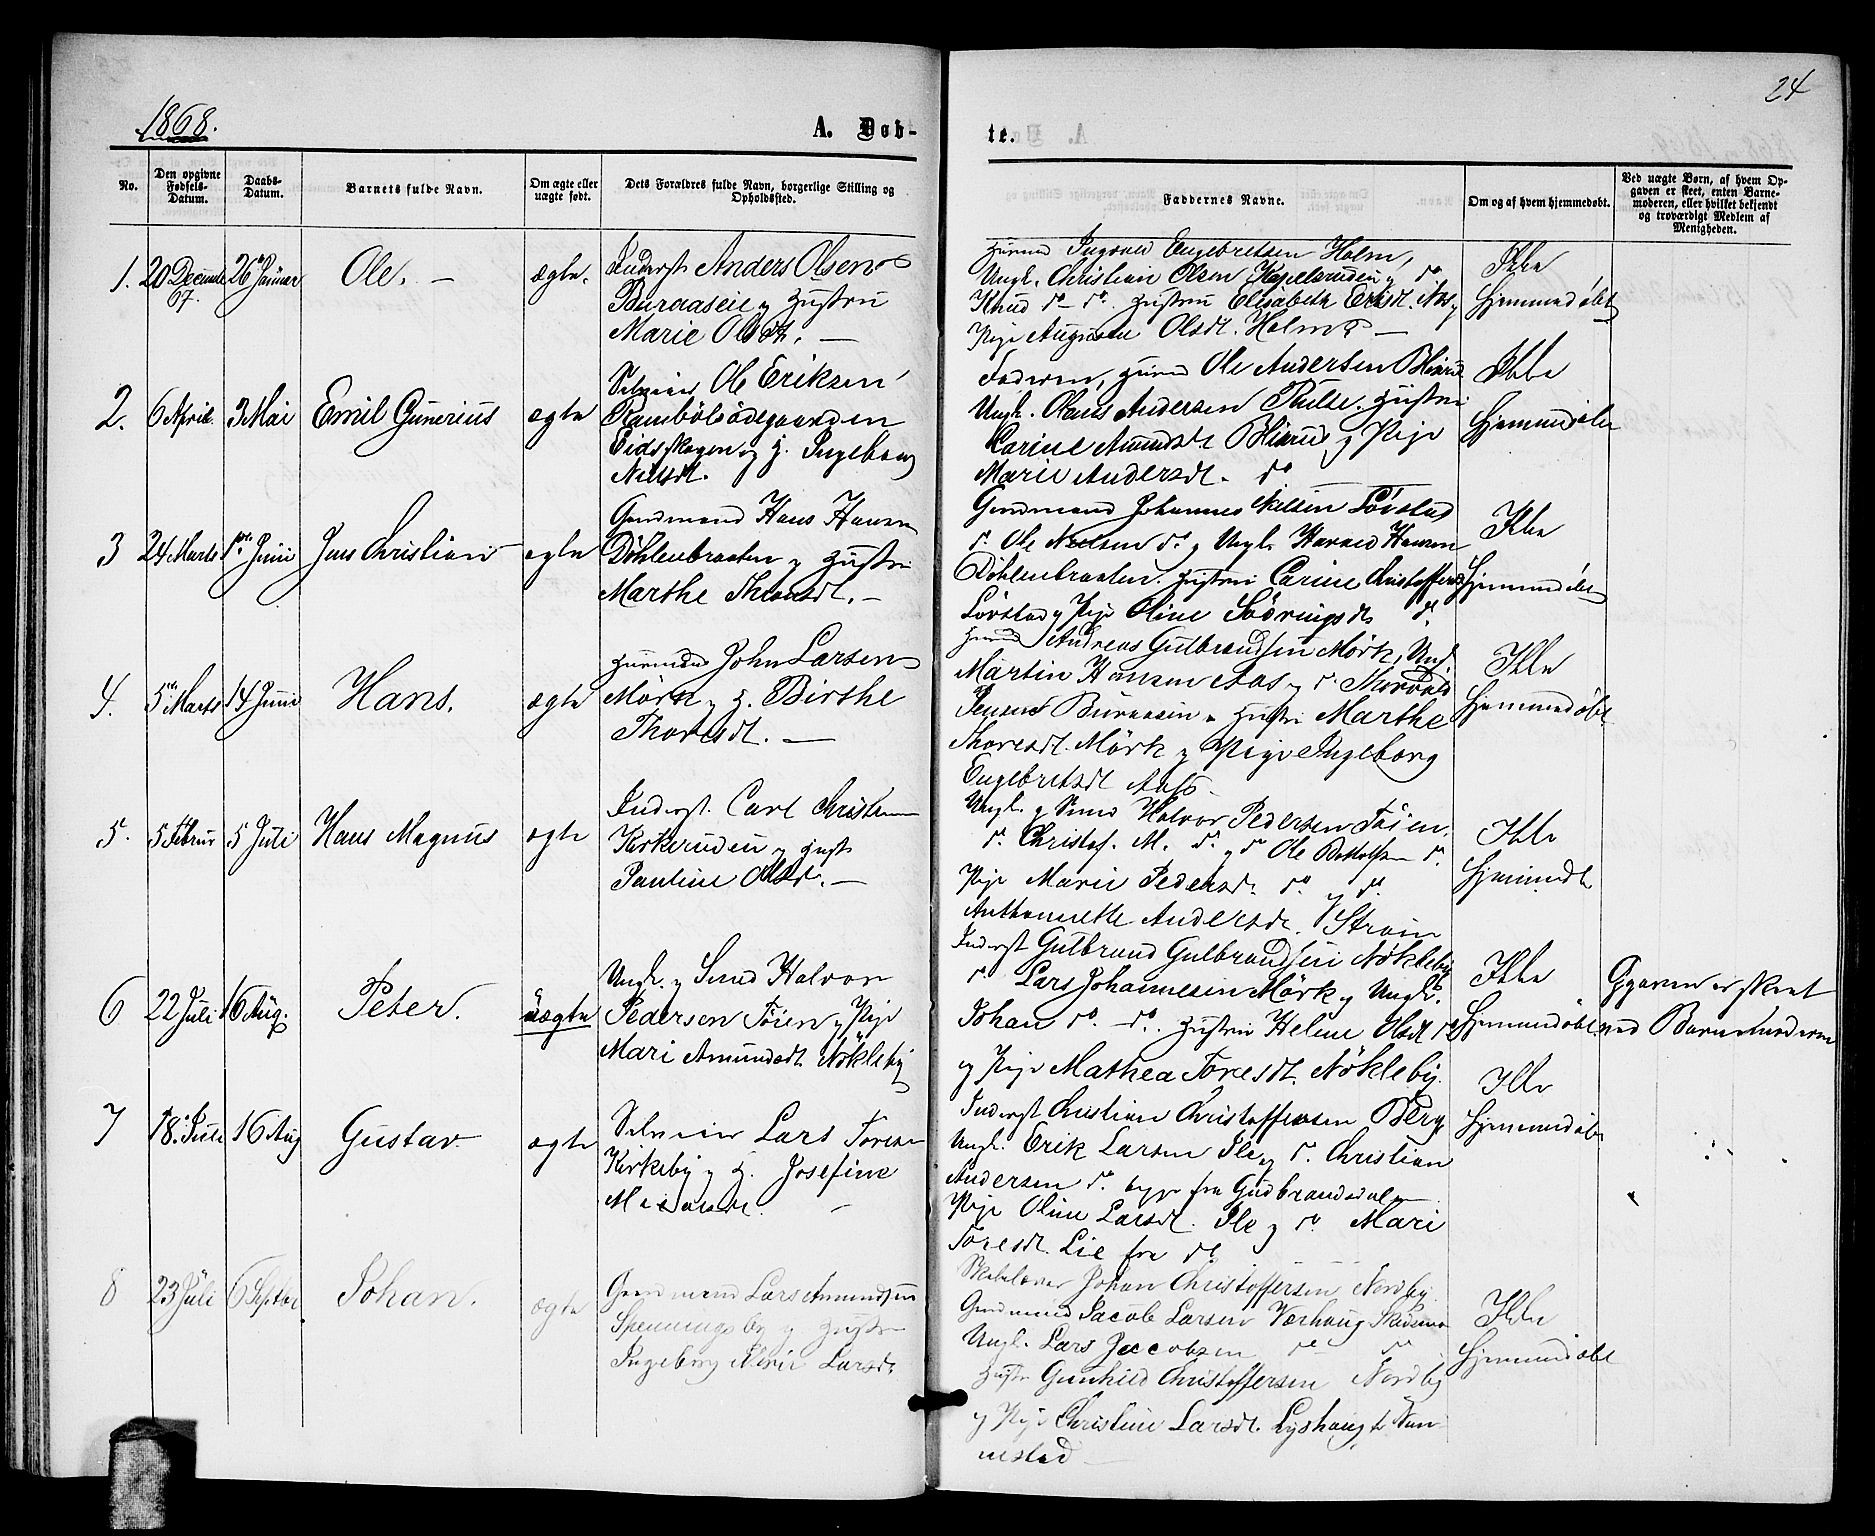 24
1868.
A. Døb-
te.
No.
Den opgivne Fødsels-Datum.
Daabs-Datum.
Barnets fulde Navn.
Om ægte eller uægte født.
Dets Forældres fulde Navn, borgerlige Stilling og Opholdssted.
Faddernes Navne.
Om og af hvem hjemmedøbt.
Ved uægte Børn, af hvem Opgaven er skeet, enten Barnemoderen, eller hvilket bekjendt og troværdigt Medlem af Menigheden.
1. 20 Decembr 67. 26 Januar Ole. – ægte.
Inderst Anders Olsen
Buraaseie og Hustru
Marie Olsdt. –
Engebretsen Holm,
Ungk. Christian Olsen Kapelsruden, do
Knud do – do. Hustru Elisabeth Eriksdt. Aas
Pige Olsdt. Holm –
Ikke
hjemmedøbt
2. 6 April. 3 Mai Emil Gunerius ægte
Selveier Ole Eriksen
Rambölsödegaarden
Eidsskogen og H. Ingeborg
Nilsdt.
Faderen, Ole Andersen
Ungk. Hans Andersen Hustru
Carine Amundsdt og Pige
Marie Andersdt. do
Ikke
hjemmedøbt
3 24 Marts 1ste Juni Jens Christian ægte
Gaardmand Hans Hansen
Döhlenbraaten og Hustru
Marthe –
Gaardmand Johannes Nilsen Lövstad
do Ole Nielsen do og Ungk. Harald Hansen
Döhlenbraaten. Hustru Carine Christoffersdt
Lövstad og Pige Oline Södringsdt do
Ikke
hjemmedøbt
4. 5te Marts 14 Juni Hans. ægte
Huusmand John Larsen
Mörk og H. Birthe
Thoresdt. –
Andreas Gulbrandsen Mörk, Ungk.
Martin Hansen Aas og do Thorvald
Jensen Hustru Marthe
Thoresdt. Mörk og Pige Ingeborg
Engebretsdt Aas.
Ikke
hjemmedøbt
5. 5 Februar 5 Juli Hans Magnus ægte
Inderst. Carl Christensen
Kirkeruden og Hustr
Pauline Olsdt. –
Ungk. og Smed Halvor Pedersen Töien,
do Christof. M. do og do Ole do
Pige Marie Pedersdt. do og do
Anthonette Andersdt. Ström
Ikke
hjemmedt
6 22 Juli 16 Aug. Peter. uægte
Ungk. og Smed Halvor
Pedersen Töien og Pige
Mari Amundsdt Nökleby
Inderst Gulbrand Gulbrandsen Nökleby
do Lars Johannesen Mörk og Ungk.
Johan do – do. Hustru Helene Olsdt do
og Pige Mathea Toresdt. Nökleby.
Ikke
hjemmedøbt
Opgaven er skeet
ved Barnemoderen
7 18. Juli 16 Aug Gustav. ægte
Selveier Lars Toresen
Kirkeby og H. Josefine
–
Inderst Christian Christoffersen Berg
Ungk. Erik Larsen Lie og do Christian
Andersen do begge fra Gudbrandsdalen
Pige Oline Larsdt. Lie og do Mari
Toresdt. Lie fra do
Ikke
hjemmedøbt
8 23 Juli 6 Septbr Johan. ægte
Gaardmand Lars Amundsen
Spenningsby og Hustru
Ingeborg Marie Larsdt
Skolelærer Johan Christoffersen Nordby
Gaardmand Jacob Larsen Værhaug Skedsmo
Ungk. Lars Jacobsen do do
Hustr Gunhild Christoffersen Nordby
og Pige Christine Larsdt. Lyshaugt Nan-
nestad –
Ikke
hjemmedøbt